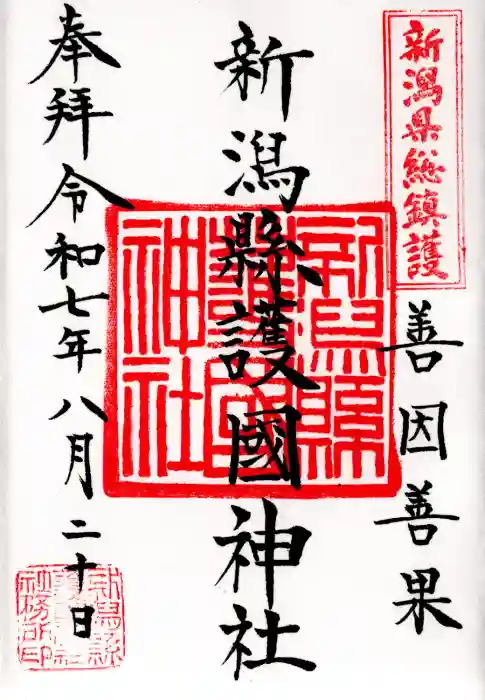 新潟県総鎮護
善因善果
新潟縣護國神社
新潟縣護國神社
奉拝
令和七年八月二十日
新潟縣
護國神社
社務所印